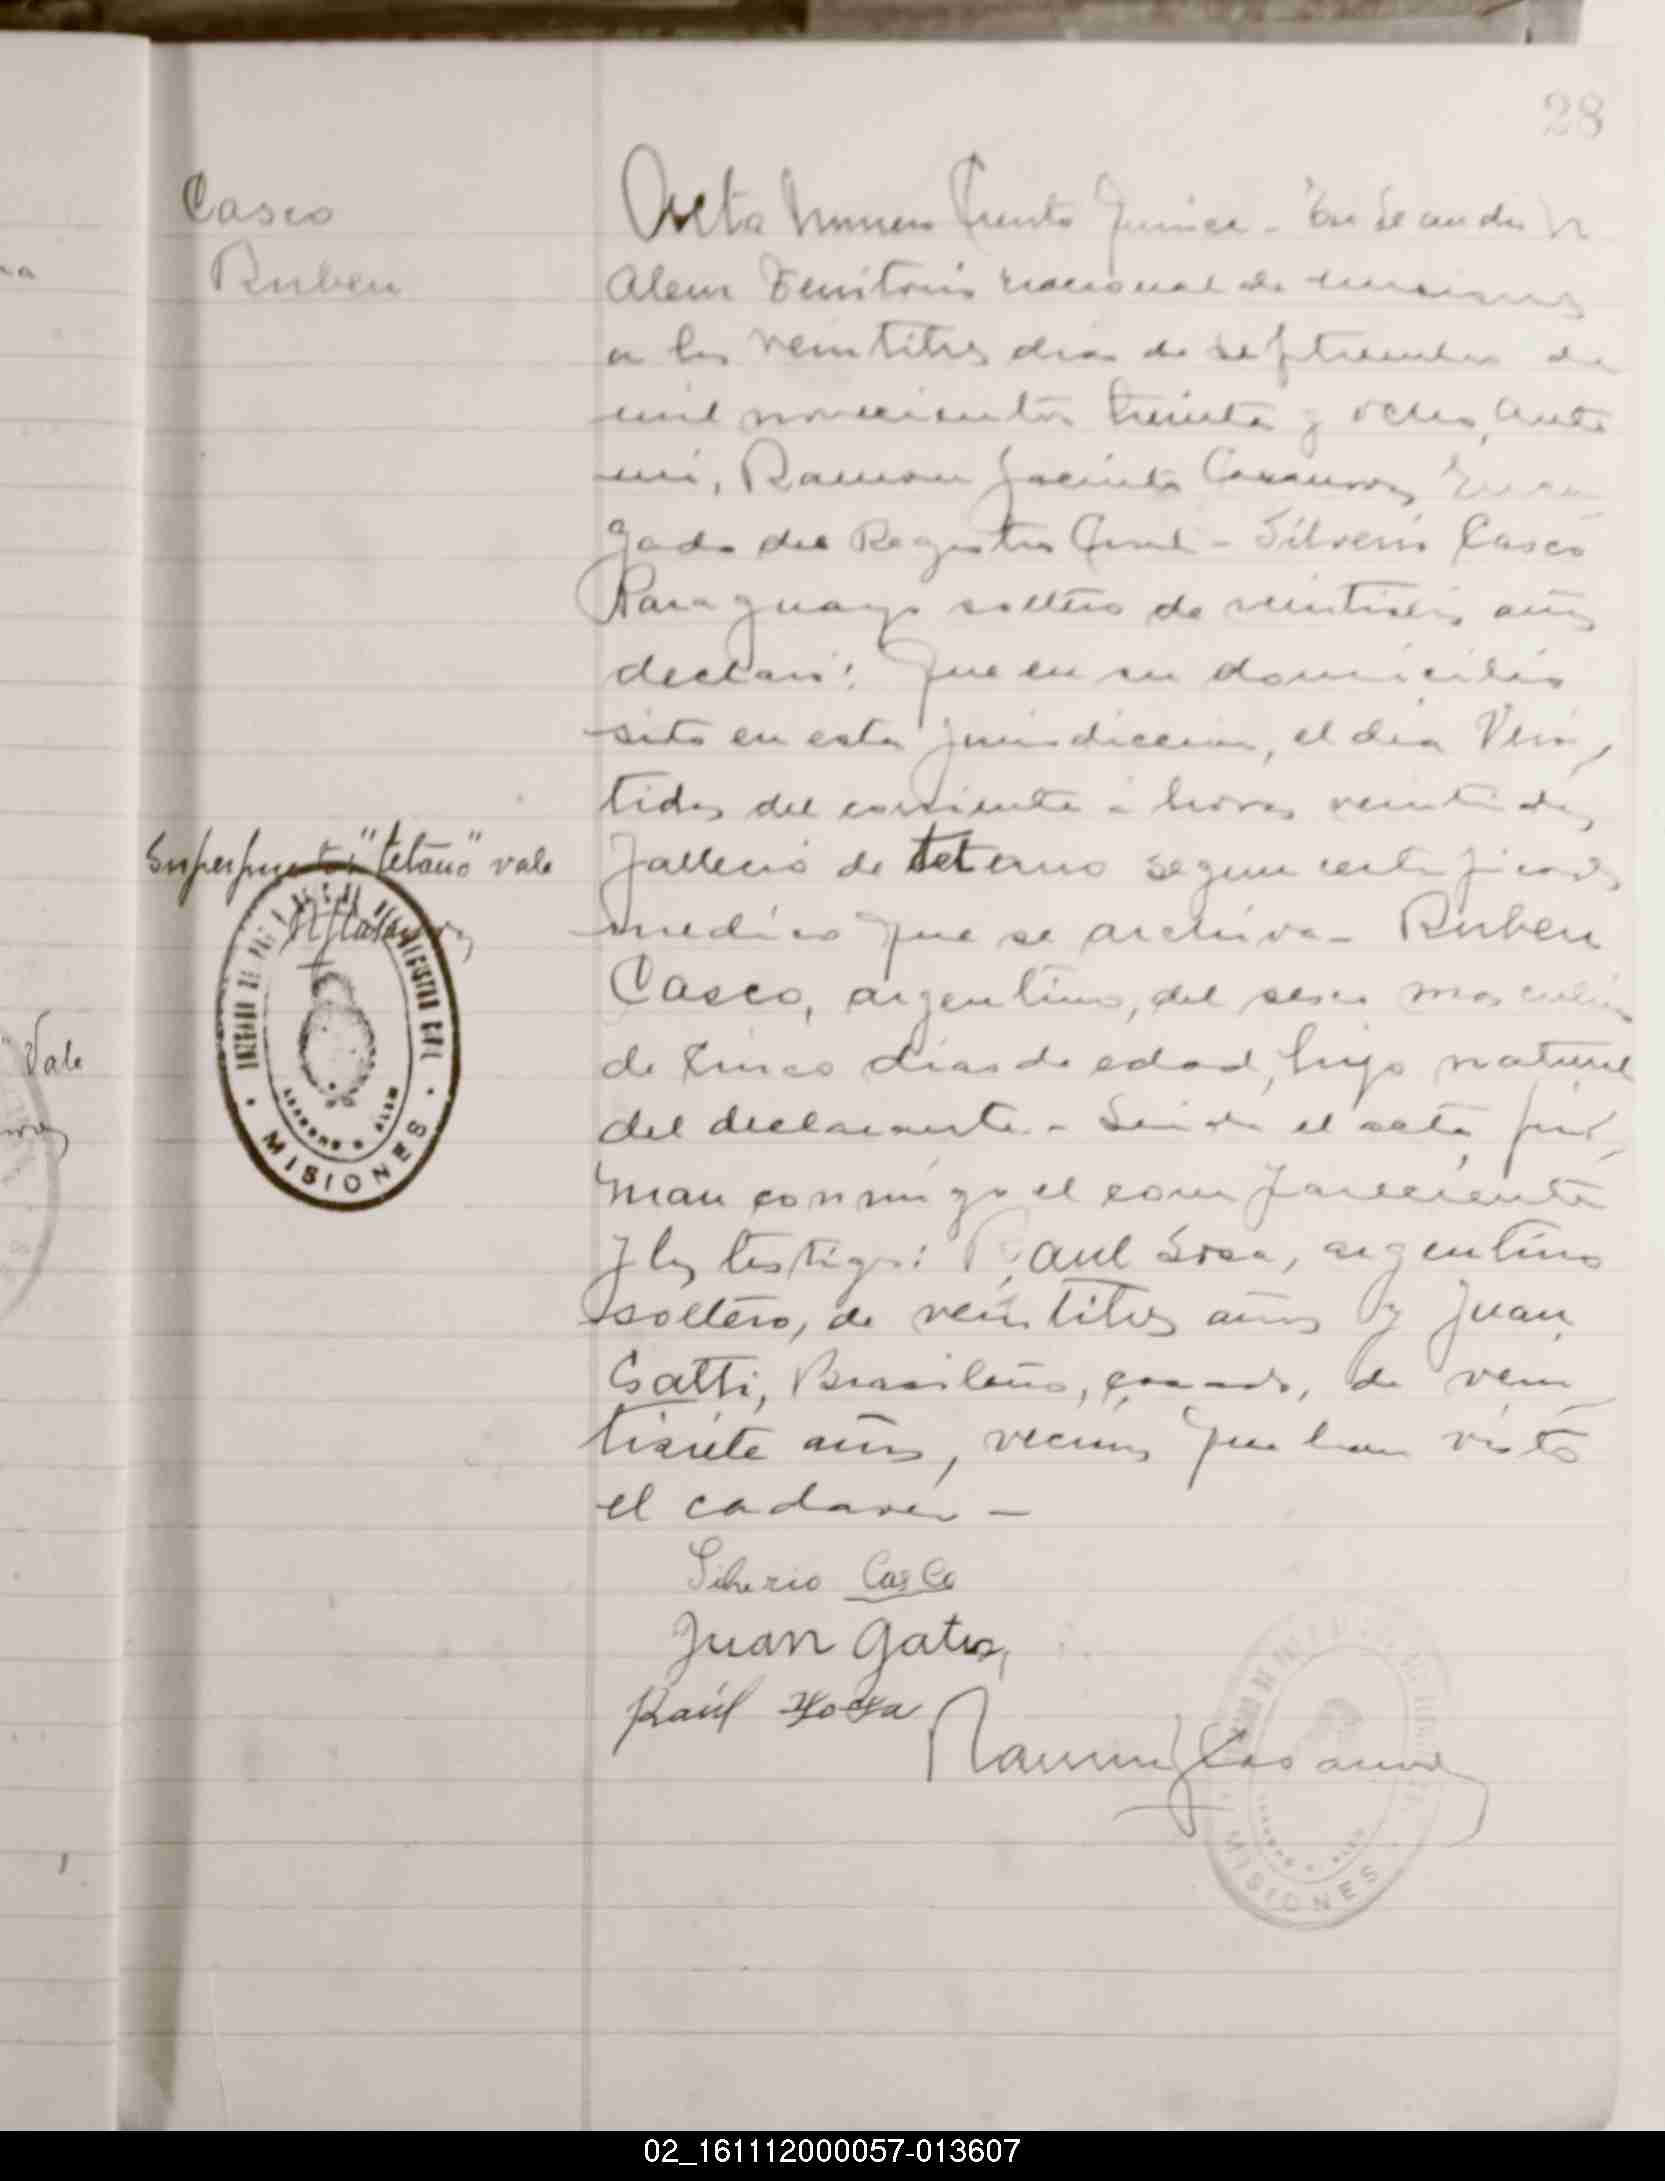 28
Casco
Ruben
Acta Numero Ciento Quince - En Leandro N
Alem Territorio nacional de misiones
a los veintitres dias de septiembre de
mil novecientos treinta y ocho, ante
mi, Ramon Jacinto Casanova, Encar
gado del Registro Civil - Silverio Casco
Paraguayo soltero de veintiseis años
declaró: Que en su domicilio
sito en esta jurisdiccion, el dia Vein,
tidos del corriente a horas veintidos
fallecio de tetano segun certificado
medico que se archiva - Ruben
Casco, argentino, del sexo masculino
de cinco dias de edad, hijo natural
del declarante - Leida el acta, fir,
man conmigo el compareciente
y los testigos: Raul Sosa, argentino
soltero, de veintitres años y Juan
Gatti, Brasileño, casado, de vein
tisiete años, vecinos que han visto
el cadaver -
Superpuesto "tetano" vale
MISIONES
Vale
Silverio Casco
Juan Gatti
Raúl Sosa
Ramon J Casanova
MISIONES
02_161112000057-013607